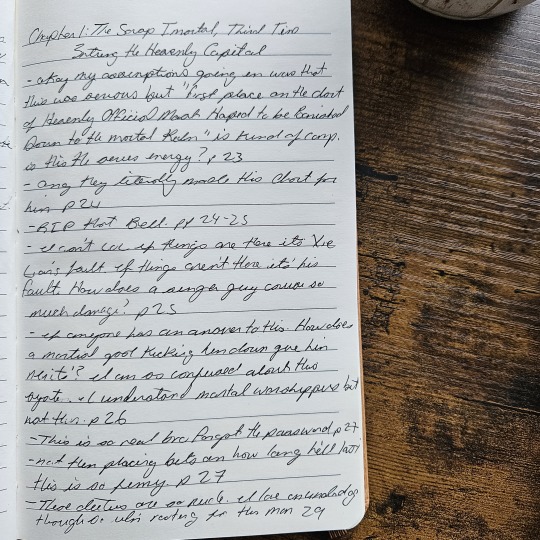 Chapter 1: The Scrap Imortal, Third Time
Entring the Heavenly Capital
- okay my assumptions going in was that
this was serious but "First place on the chart
of Heavenly Official Most Hoped to be Banished
Down to the mortal Relm" is kind of comp.
is this the series energy? p 23
- omg they literally made this Chart for
him p24
- RIP that Bell. pp 24-25
- I can't lol if things are there its Xie
Lian's fault if things aren't there it's his
fault. How does a single guy cause so
much damage? p25
- if anyone has an answer to this. How does
a martial god kicking him down give him
merits? I am so confused about this
I understand mortal worshippers but
not this. p 26
- This is so real bro forgot the password p27
- not them placing bets on how long he'll last
this is so funny p 27
- These deities are so rude. I love
though so rooting for this man 29